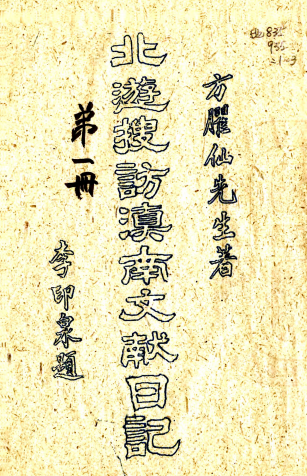 方臞仙先生著
北遊搜訪滇南文献日記
第一冊
李印泉題